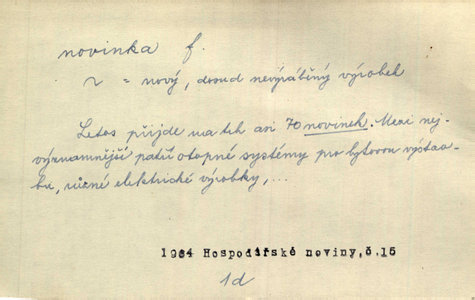 novinka f.
~ = nový, dosud nevyráběný výrobek
Letos přijde na trh asi 70 novinek. Mezi nej-
významnější patří otopné systémy pro bytovou výstav-
bu, různé elektrické výrobky, ...
1964 Hospodářské noviny, č.15
1d